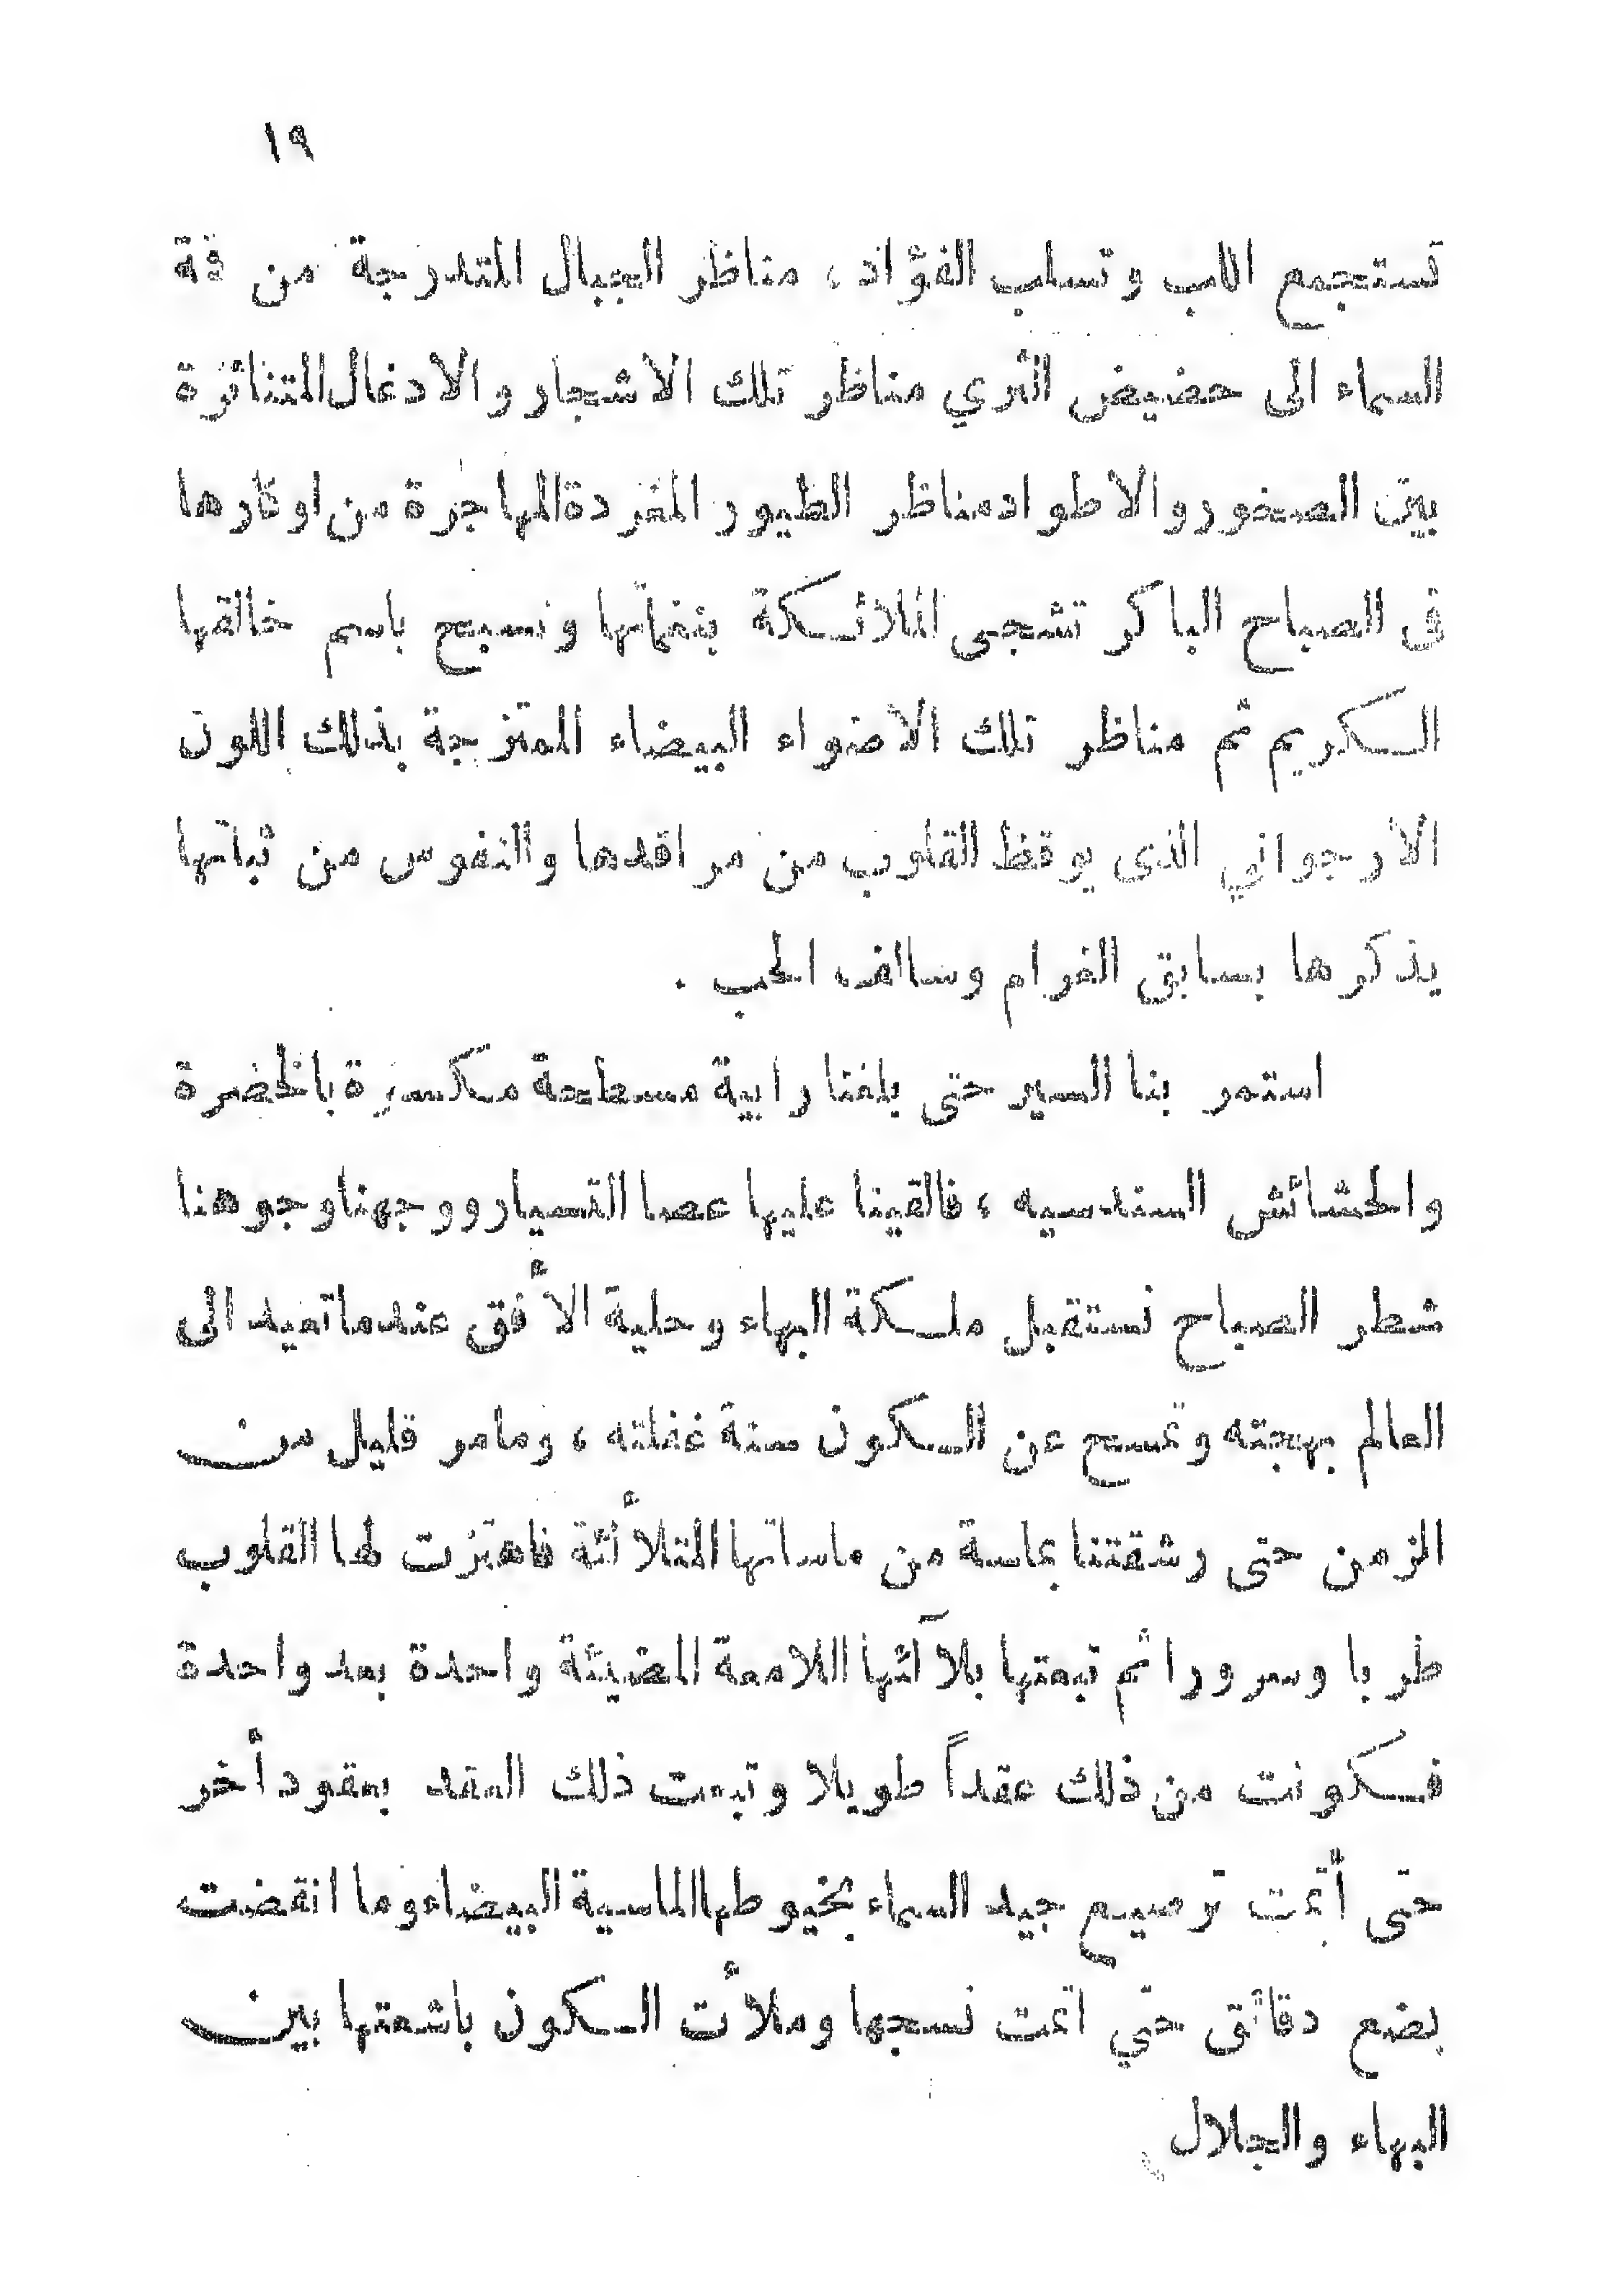 ١٩
تستجمع اللب وتسلب الفؤاد ، مناظر الجبال المتدرجة من قمة
السماء الى حضيض الثري مناظر تلك الاشجار والادغال المتناثرة
بين الصخور والاطواد مناظر الطيور المغردة المهاجرة من اوكارها
فى الصباح الباكر تشجى الملائكة بنغماتها وتسبح باسم خالقها
الكريم ثم مناظر تلك الاضواء البيضاء الممتزجة بذلك اللون
الارجواني الذى يوقظ القلوب من مراقدها والنفوس من ثباتها
يذكرها بسابق الغرام وسالف الحب .
استمر بنا السير حتى بلغنا رابية مسطحة مكسوة بالخضرة
والحشائش السندسيه ، فالقينا عليها عصا التسيار ووجهنا وجوهنا
شطر الصباح نستقبل ملكة البهاء وحلية الأفق عندما تعيد الى
العالم بهجته وتمسح عن الكون سنة غفلته ، وما مر قليل من
الزمن حتى رشقتنا بماسة من ماساتها المتلألئة فاهتزت لها القلوب
طربا وسرورا ثم تبعتها بلآلئها اللامعة المضيئة واحدة بعد واحدة
فكونت من ذلك عقداً طويلا وتبعت ذلك العقد بعقود أخر
حتى أتمت ترصيع جيد السماء بخيوطها الماسية البيضاء وما انقضت
بضع دقائق حتي اتمت نسجها وملأت الكون باشعتها بين
البهاء والجلال